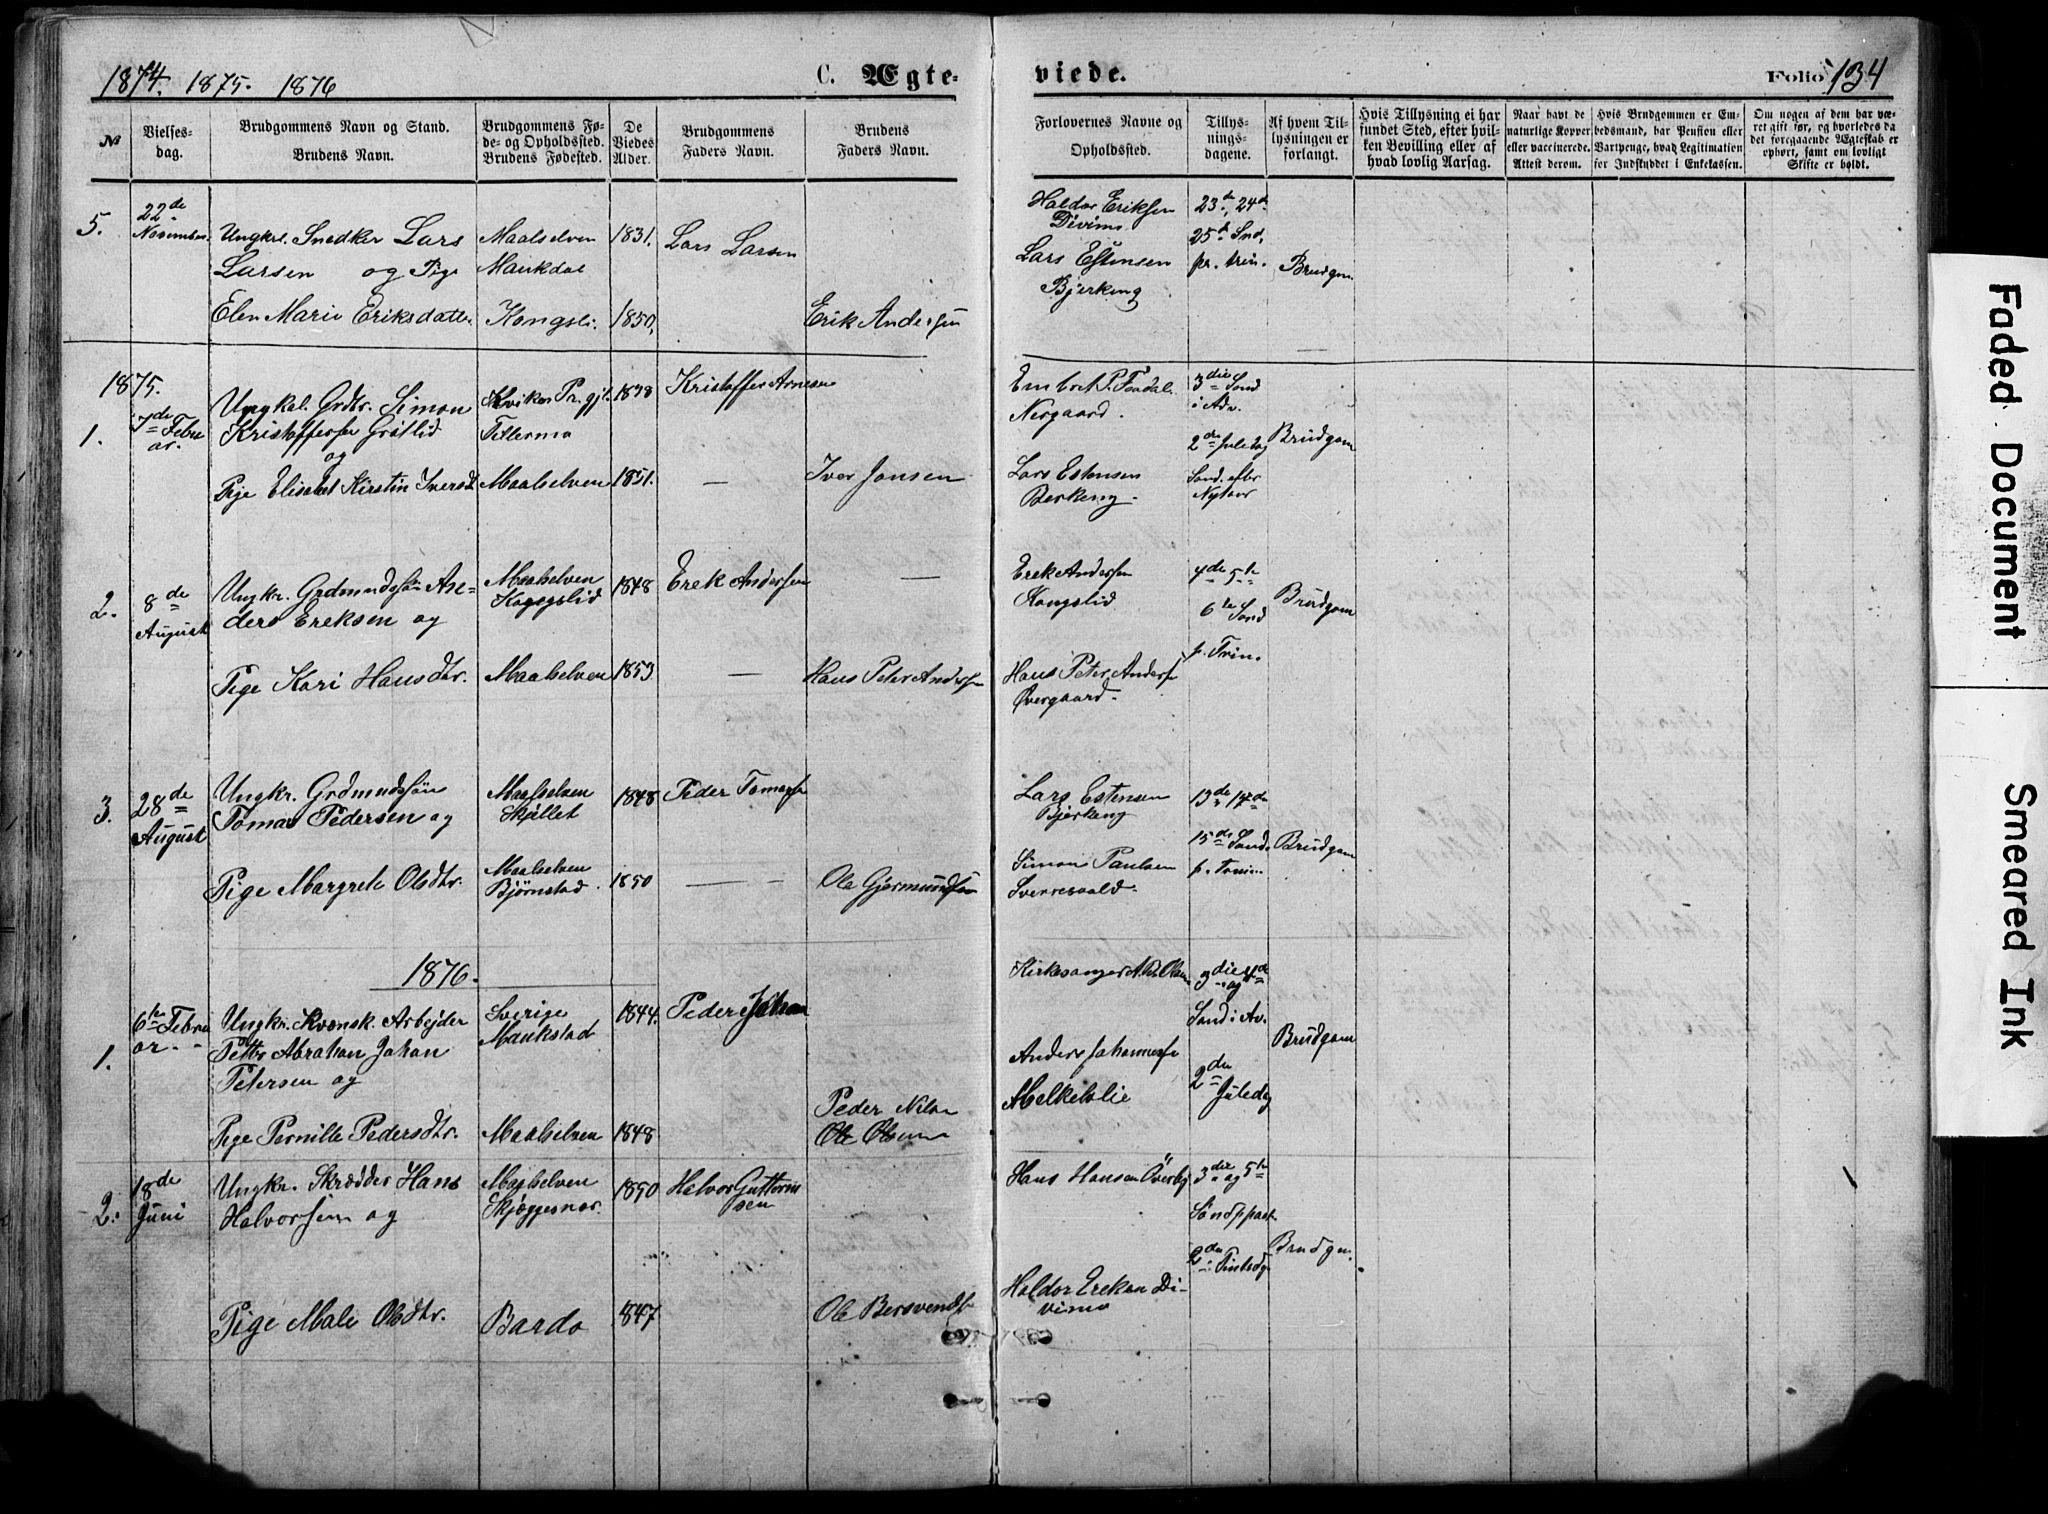 1874. 1875. 1876
C. Ægte-
viede.
Folio 134
No
Vielses-
dag.
Brudgommens Navn og Stand.
Brudens Navn.
Brudgommens Fø-
de- og Opholdssted.
Brudens Fødested.
De
Viedes
Alder.
Brudgommens
Faders Navn.
Brudens
Faders Navn.
Forlovernes Navne og
Opholdssted.
Tillys-
nings-
dagene.
Af hvem Til-
lysningen er
forlangt.
Hvis Tillysning ei har
fundet Sted, efter hvil-
ken Bevilling eller af
hvad lovlig Aarsag.
Naar havt de
naturlige Kopper
eller vaccinerede.
Attest derom.
Hvis Brudgommen er Em-
bedsmand, har Pension eller
Vartpenge, hvad Legitimation
for Indskuddet i Enkekassen.
Om nogen af dem har væ-
ret gift før, og hvorledes da
det foregaaende Ægteskab er
ophørt, samt om lovligt
Skifte er holdt.
5.
22de
November
Ungkl. Snedker Lars
Larsen og Pige
Elen Marie Eriksdatter
Maalselven
Maukdal
Kongsli.
1831.
1850,
Lars Larsen
Erik Andersen
Haldor Eriksen
Divimo
Lars Estensen
Bjerkeng
23de, 24de
25de Snd,
pr. trin.
Brudgom
1875.
1.
7de Febru
ar.
Ungkal. Grdtr. Simon
Kristoffersen Grøtlid
og
Pige Elisabet Kirstin Iversd.
Kvikne Pr.gjl.
Tellermo
Maalselven
1838
1851.
Kristoffer Arnesen
—
Iver Jonsen
Embret P. Fosdal
Nergaard.
Lars Estensen
Berkeng.
3die Sønd
i Adv.
2den Juledag
Sønd. efter
Nytaar
Brudgom
2.
8de
August
Ungkr. Grdmundssøn An-
ders Ereksen og
Pige Kari Hansdtr.
Maalselven
Kongslid
Maalselven
1848
1853
Erek Andersen
—
—
Hans Peter Andersen
Erek Andersen
Kongslid
Hans Peter Andersen
Øvergaard.
4de 5te
6te Sønd
p. Trin.
Brudgom
3.
28de
August
Ungkr. Grdmundssøn
Tomas Pedersen og
Pige Margrete Olsdtr.
Maalselven
Skjøllet
Maalselven
Bjørnstad.
1848
1850
Peder Tomassen
— —
Ole Gjermundsen
Lars Estensen
Bjerkeng
Simon Paulsen
Sverresvold.
13de 14de
15de Sønd.
p. Trin.
Brudgom
1876.
1.
6te Febru
ar.
Ungkr. Kvænsk. Arbejder
Abraham Johan
Petersen og
Pige Pernille Pedersdtr.
Sverige
Maukstad
Maalselven
1844.
1848.
Peder Johan
Peder Nilsen
Ole Olsen
Kirkesanger A. Olsen
Anders Johannesen
Melkelie
3die og 4de
Sønd i Av.
2den
Juledag
Brudgom
2.
18de
Juni
Ungkr. Skrædder Hans
Halvorsen og
Pige Mali Olsdtr.
Maalselven
Skjæggesnes.
Bardo
1850
1847
Halvor Guttorm
sen
Ole Bersvends.
Hans Hansen Överby
Haldor Ereksen Di-
vimo
3die og 5te
Sönd p paask
2den Pintsdg
Brudgm.
Faded Document
Smeared Ink